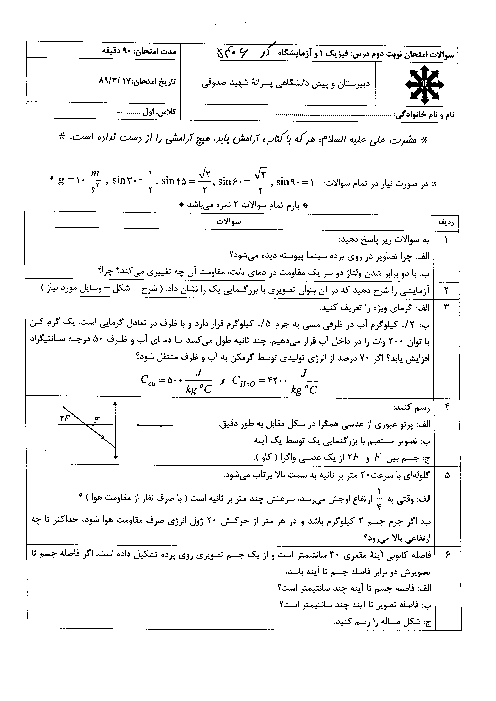 سوالات امتحان نوبت دوم درس: فیزیک ۱ و آزمایشگاه
مدت امتحان: ۹۰ دقیقه
دبیرستان و پیش دانشگاهی پسرانهٔ شهید صدوقی
تاریخ امتحان: ۸۹/۳/۱۷
نام و نام خانوادگی:
کلاس: اول
* حضرت علی علیه السلام: هر که با کتاب آرامش یابد، هیچ آرامشی را از دست نداده است. *
* در صورت نیاز در تمام سوالات: sin۹۰=۱ , sin۶۰=√۳/۲ , sin۴۵=√۲/۲ , sin۳۰=۱/۲ , g=۱۰ m/s² *
* بارم تمام سوالات ۲ نمره می‌باشد *
ردیف
سوالات
۱
به سوالات زیر پاسخ دهید:
الف: چرا تصاویر در روی پرده سینما پیوسته دیده می‌شود؟
ب: با دو برابر شدن ولتاژ دو سر یک مقاومت در دمای ثابت، مقاومت آن چه تغییری می‌کند؟ چرا؟
۲
آزمایشی را شرح دهید که در آن بتوان تصویری با بزرگنمایی یک را نشان داد. ( شرح – شکل – وسایل مورد نیاز )
۳
الف: گرمای ویژه را تعریف کنید.
ب: ۰/۲ کیلوگرم آب در ظرفی مسی به جرم ۰/۵ کیلوگرم قرار دارد و با ظرف در تعادل گرمایی است. یک گرم کن
با توان ۲۰۰ وات را در داخل آب قرار می‌دهیم. چند ثانیه طول می‌کشد تا دمای آب و ظرف ۵۰ درجه سانتیگراد
افزایش یابد؟ اگر ۷۰ درصد از انرژی تولیدی توسط گرمکن به آب و ظرف منتقل شود؟
C_cu = ۵۰۰ J/kg°C و C_H₂O = ۴۲۰۰ J/kg°C
۴
رسم کنید:
الف: پرتو عبوری از عدسی همگرا در شکل مقابل به طور دقیق.
ب: تصویر مستقیم با بزرگنمایی یک توسط یک آینه
ج: جسم بین F و 2F از یک عدسی واگرا ( کاو ).
2F
۵
گلوله‌ای با سرعت ۲۰ متر بر ثانیه به سمت بالا پرتاب می‌شود.
الف: وقتی به ۱/۴ ارتفاع اوجش می‌رسد، سرعتش چند متر بر ثانیه است ( با صرف نظر از مقاومت هوا ) ؟
ب: اگر جرم جسم ۲ کیلوگرم باشد و در هر متر از حرکتش ۲۰ ژول انرژی صرف مقاومت هوا شود، حداکثر تا چه
ارتفاعی بالا می‌رود؟
۶
فاصله کانونی آینهٔ مقعری ۳۰ سانتیمتر است و از یک جسم تصویری روی پرده تشکیل داده است. اگر فاصله جسم تا
تصویرش دو برابر فاصله جسم تا آینه باشد،
الف: فاصله جسم تا آینه چند سانتیمتر است؟
ب: فاصله تصویر تا آینه چند سانتیمتر است؟
ج: شکل مساله را رسم کنید.